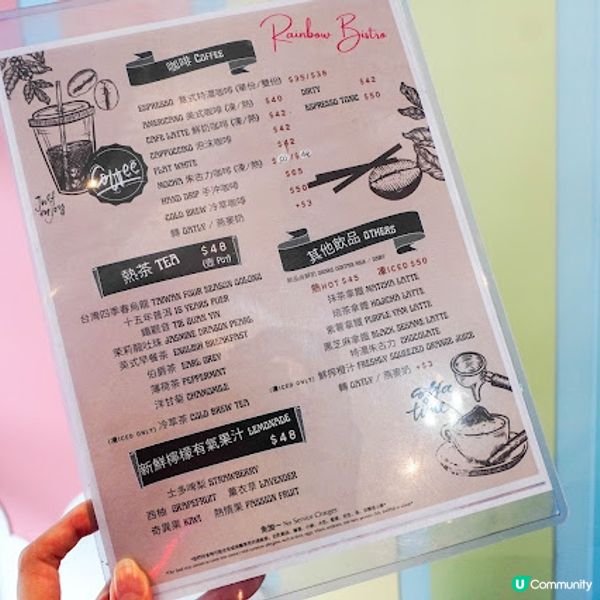 Rainbow Bistro
咖啡 COFFEE
ESPRESSO 意式特濃咖啡 (單份/雙份) $35/$38
AMERICANO 美式咖啡 (凍/熱) $40
CAFE LATTE 鮮奶咖啡 (凍/熱) $42
CAPPUCCINO 泡沫咖啡 $42
FLAT WHITE $42
MOCHA 朱古力咖啡 (凍/熱)
HAND DRIP 手沖咖啡 $65
COLD BREW 冷萃咖啡 $50
轉 OATLY / 燕麥奶 +$3
DIRTY $42
ESPRESSO TONIC $50
Just enjoy
Coffee
熱茶 TEA $48 (壺 Pot)
台灣四季春烏龍 TAIWAN FOUR SEASON OOLONG
十五年普洱 15 YEARS PUER
鐵觀音 TIE GUAN YIN
茉莉龍吐珠 JASMINE DRAGON PEARL
英式早餐茶 ENGLISH BREAKFAST
伯爵茶 EARL GREY
薄荷茶 PEPPERMINT
洋甘菊 CHAMOMILE
(凍ICED ONLY) 冷萃茶 COLD BREW TEA
其他飲品 OTHERS
熱HOT $45 凍ICED $50
抹茶拿鐵 MATCHA LATTE
焙茶拿鐵 HOJICHA LATTE
紫薯拿鐵 PURPLE YAM LATTE
黑芝麻拿鐵 BLACK SESAME LATTE
特濃朱古力 CHOCOLATE
(凍ICED ONLY) 鮮搾橙汁 FRESHLY SQUEEZED ORANGE JUICE
轉 OATLY / 燕麥奶 +$3
coffee time
新鮮檸檬有氣果汁 LEMONADE $48
士多啤梨 STRAWBERRY
西柚 GRAPEFRUIT 薰衣草 LAVENDER
奇異果 KIWI 熱情果 PASSION FRUIT
免加一 No Service Charges
U Community